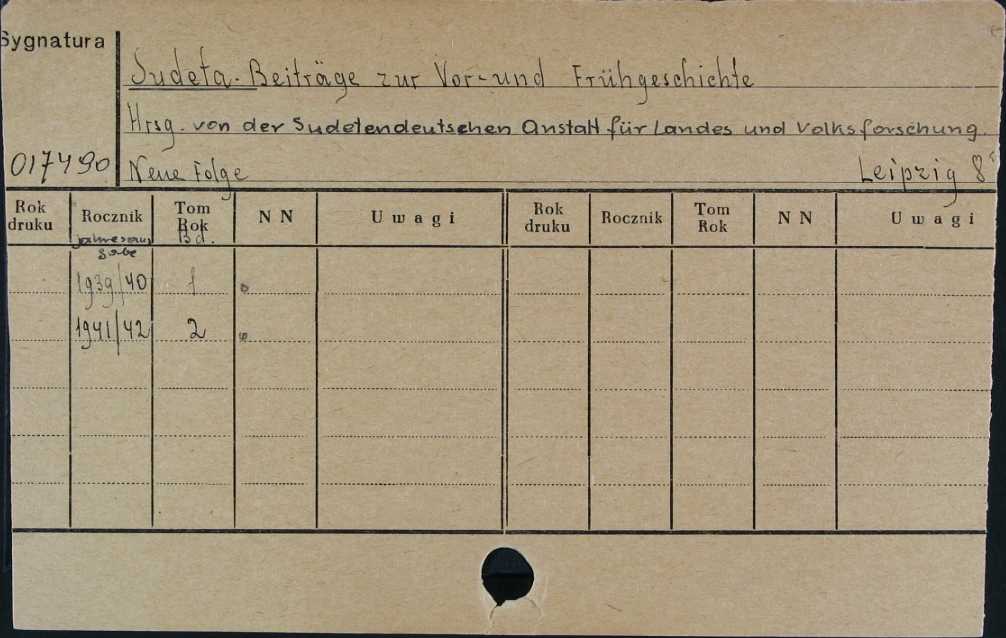 Sygnatura
Sudeta. Beiträge zur Vor- und Frühgeschichte
Hrsg. von der Sudetendeutschen Anstalt für Landes und Volksforschung.
017490 Neue Folge Leipzig 8°
Rok druku Rocznik Tom Rok NN Uwagi Rok druku Rocznik Tom Rok NN Uwagi
Jahresausgabe Bd.
1939/40 1
1941/42 2